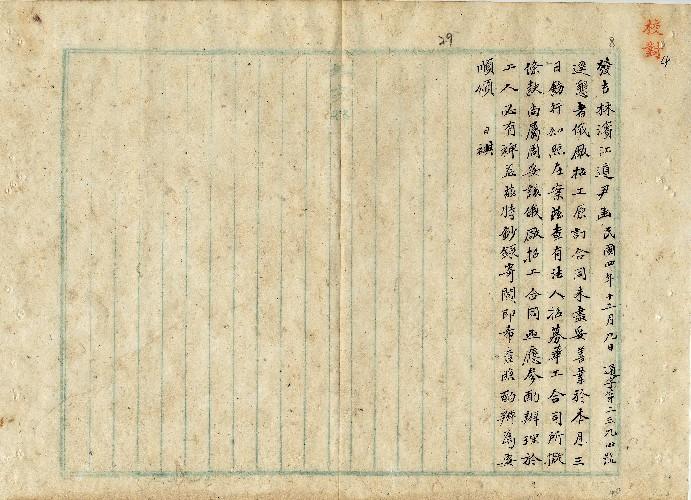 校對
8
29
發吉林濱江道尹函 民國四年十二月九日 通字第二三九四號
逕懇者俄廠招工原訂合同未盡妥善業於本月三
日飭行知照在案茲查有法人招募華工合同所擬
條款尚屬周妥該俄廠招工合同亟應參酌辦理於
工人必有裨益茲特鈔錄寄閱即希查照酌辦為要
順頌 日祺